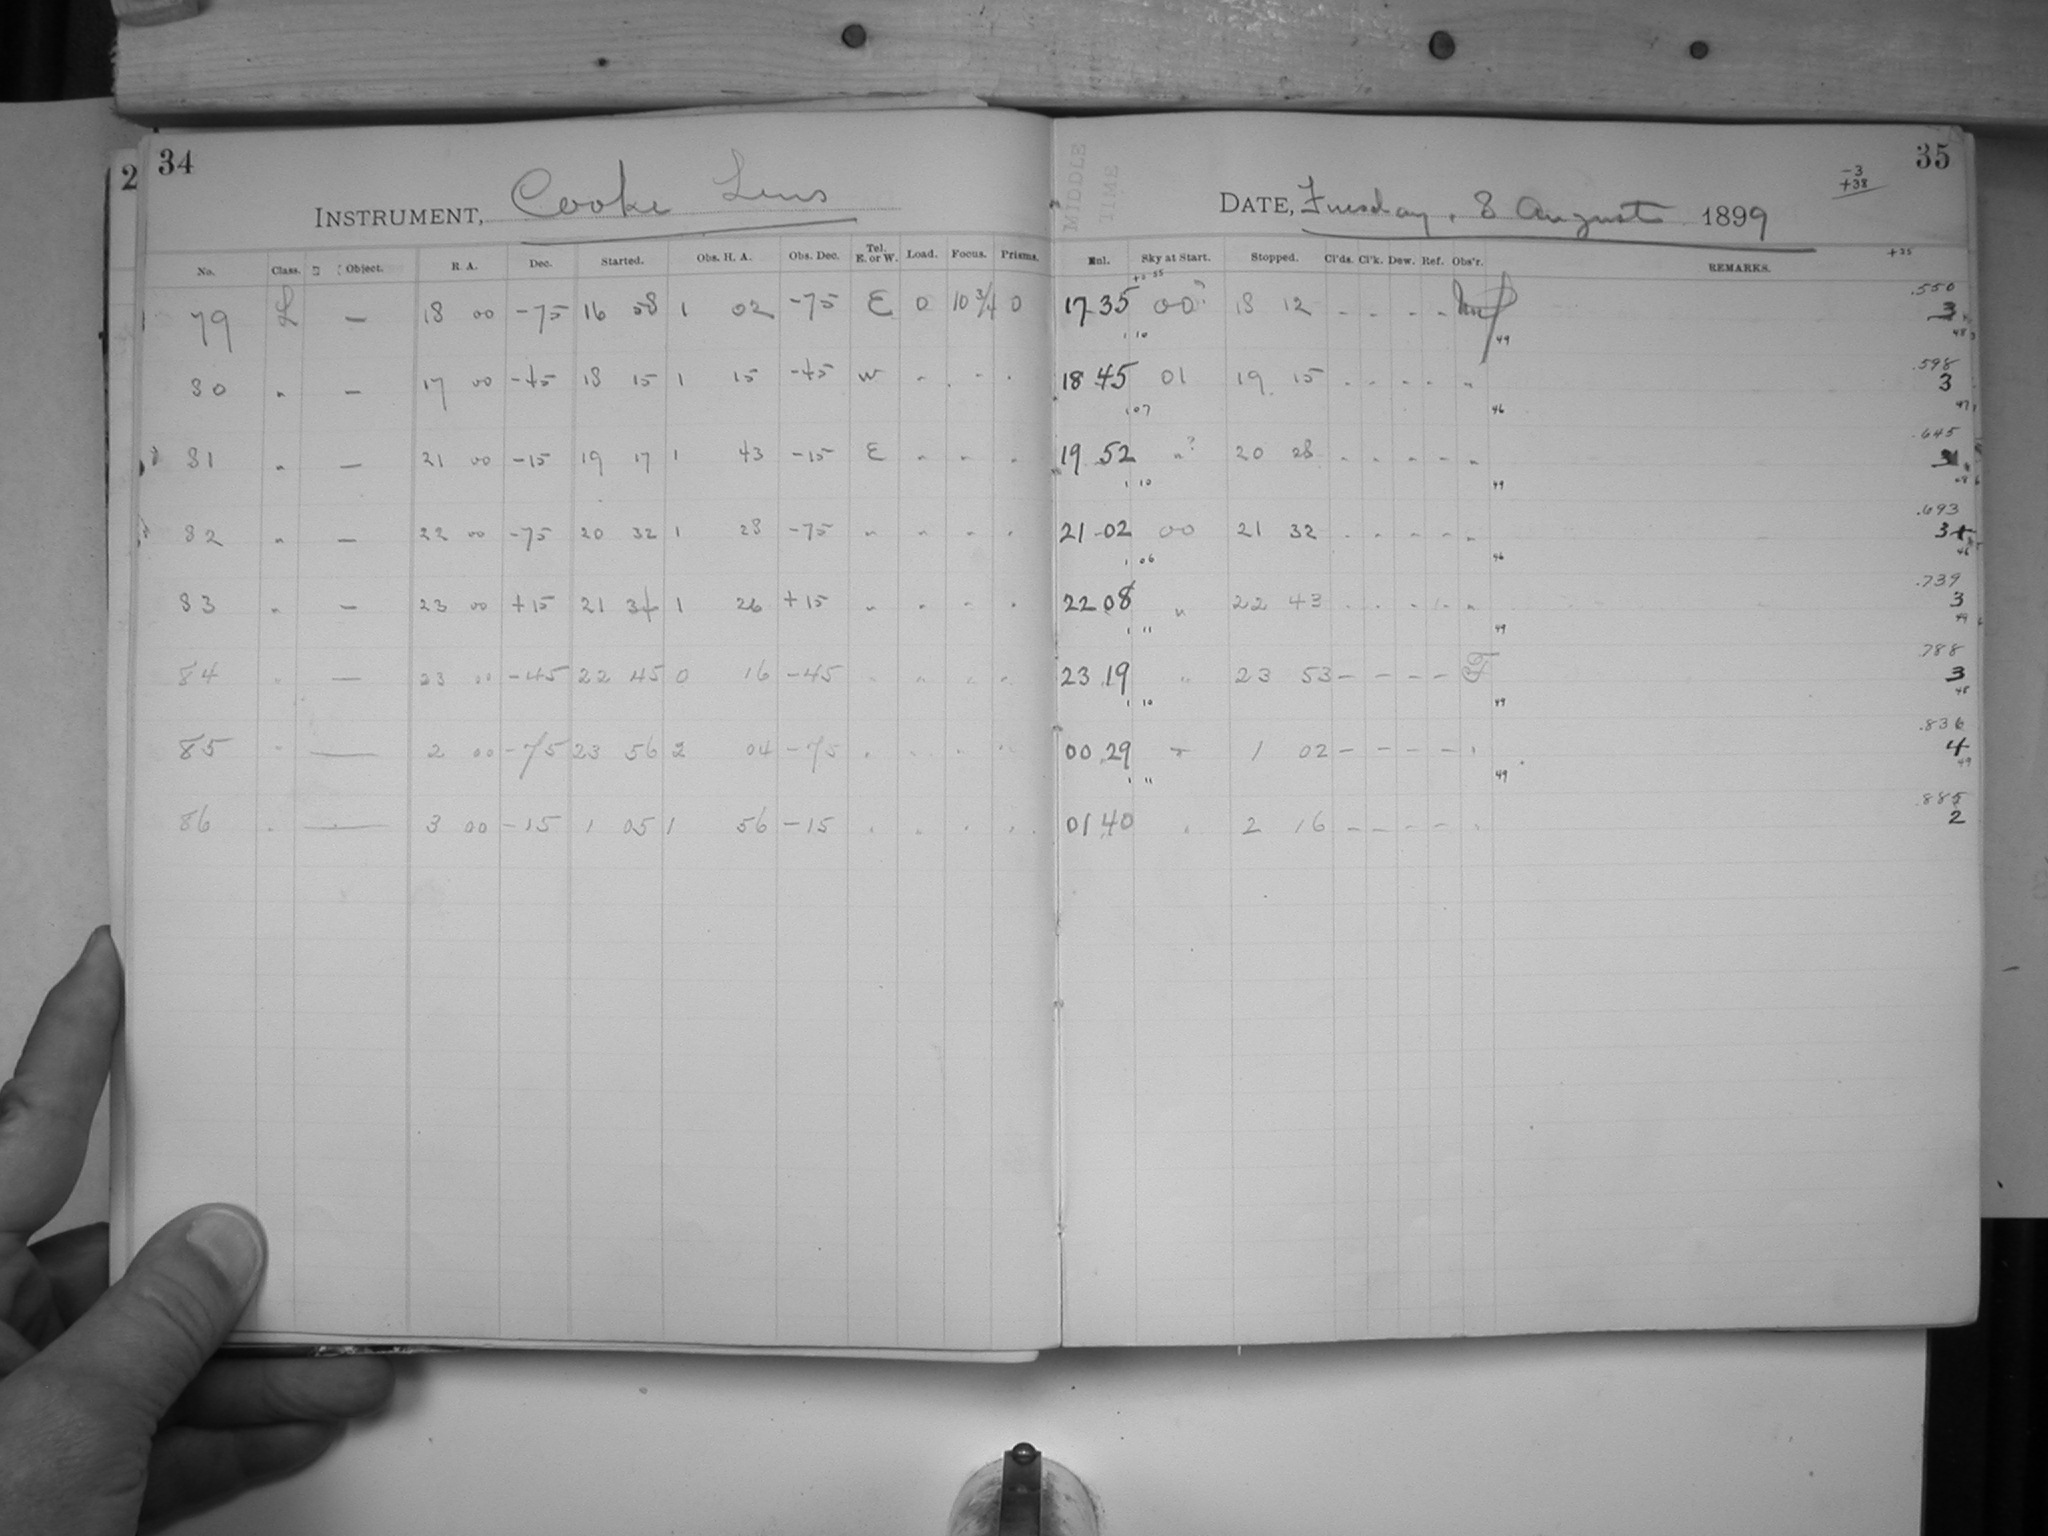 2
34
INSTRUMENT, Cooke Lens
No. Class. Object. R. A. Dec. Started. Obs. H. A. Obs. Dec. Tel. E. or W. Load. Focus. Prisms.
79 L — 18 00 -75 16 58 1 02 -75 E 0 10 3/4 0
80 " — 17 00 -45 18 15 1 15 -45 W " " "
81 " — 21 00 -15 19 17 1 43 -15 E " " "
82 " — 22 00 -75 20 32 1 28 -75 " " " "
83 " — 23 00 +15 21 34 1 26 +15 " " " "
84 " — 23 00 -45 22 45 0 16 -45 " " " "
85 " — 2 00 -75 23 56 2 04 -75 " " " "
86 " — 3 00 -15 1 05 1 56 -15 " " " "
35
-3
+38
MIDDLE
TIME
DATE, Tuesday, 8 August 1899
+25
Sky at Start. Stopped. Cl'ds. Cl'k. Dew. Ref. Obs'r. REMARKS.
.550
17 35 00? 18 12 - - - - 3
1 10 49 48
.598
18 45 01 19 15 - - - - " 3
1 07 46 47
.645
19 52 "? 20 28 - - - - "
1 10 49
.693
21 02 00 21 32 - - - - " 3
1 06 46 46
.739
22 08 " 22 43 - - - - " 3
1 11 49 49
.788
23 19 " 23 53 - - - - 3
1 10 49 48
.836
00 29 " 1 02 - - - - " 4
1 11 49 49
.885
01 40 " 2 16 - - - - " 2